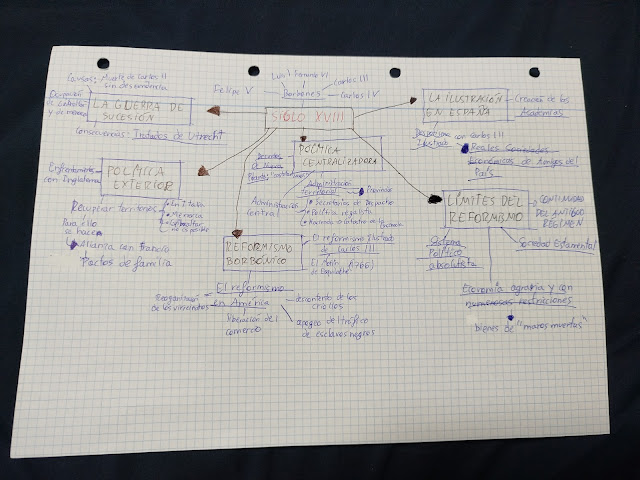 Luis I Fernando VI
Carlos III
Felipe V
Borbones
Carlos IV
SIGLO XVIII
Causas: Muerte de Carlos II
sin descendencia
LA GUERRA DE
SUCESIÓN
Consecuencias: Tratados de Utrecht
LA ILUSTRACIÓN
EN ESPAÑA
Creación de las
Academias
Despotismo
Ilustrado
con Carlos III
Reales Sociedades
Económicas de Amigos del
País
POLÍTICA
EXTERIOR
Enfrentamientos
con Inglaterra
Recuperar territorios
En Italia
Menorca
Gibraltar
Para ello
se hace
Alianza con Francia
Pactos de familia
POLÍTICA
CENTRALIZADORA
Decretos
de Nueva
Planta
Administración
territorial
Provincias
Administración
central
Secretarías de Despacho
Política regalista
Hacienda → Catastro de la
Ensenada
REFORMISMO
BORBÓNICO
El reformismo ilustrado
de Carlos III
El Motín (1766)
de Esquilache
El reformismo
en América
Reorganización
de los virreinatos
liberación del
comercio
descontento de los
criollos
apogeo del tráfico
de esclavos negros
LÍMITES DEL
REFORMISMO
CONTINUIDAD
DEL ANTIGUO
RÉGIMEN
Sistema
Político
absolutista
Sociedad Estamental
Economía agraria y con
numerosas restriciones
bienes de "manos muertas"